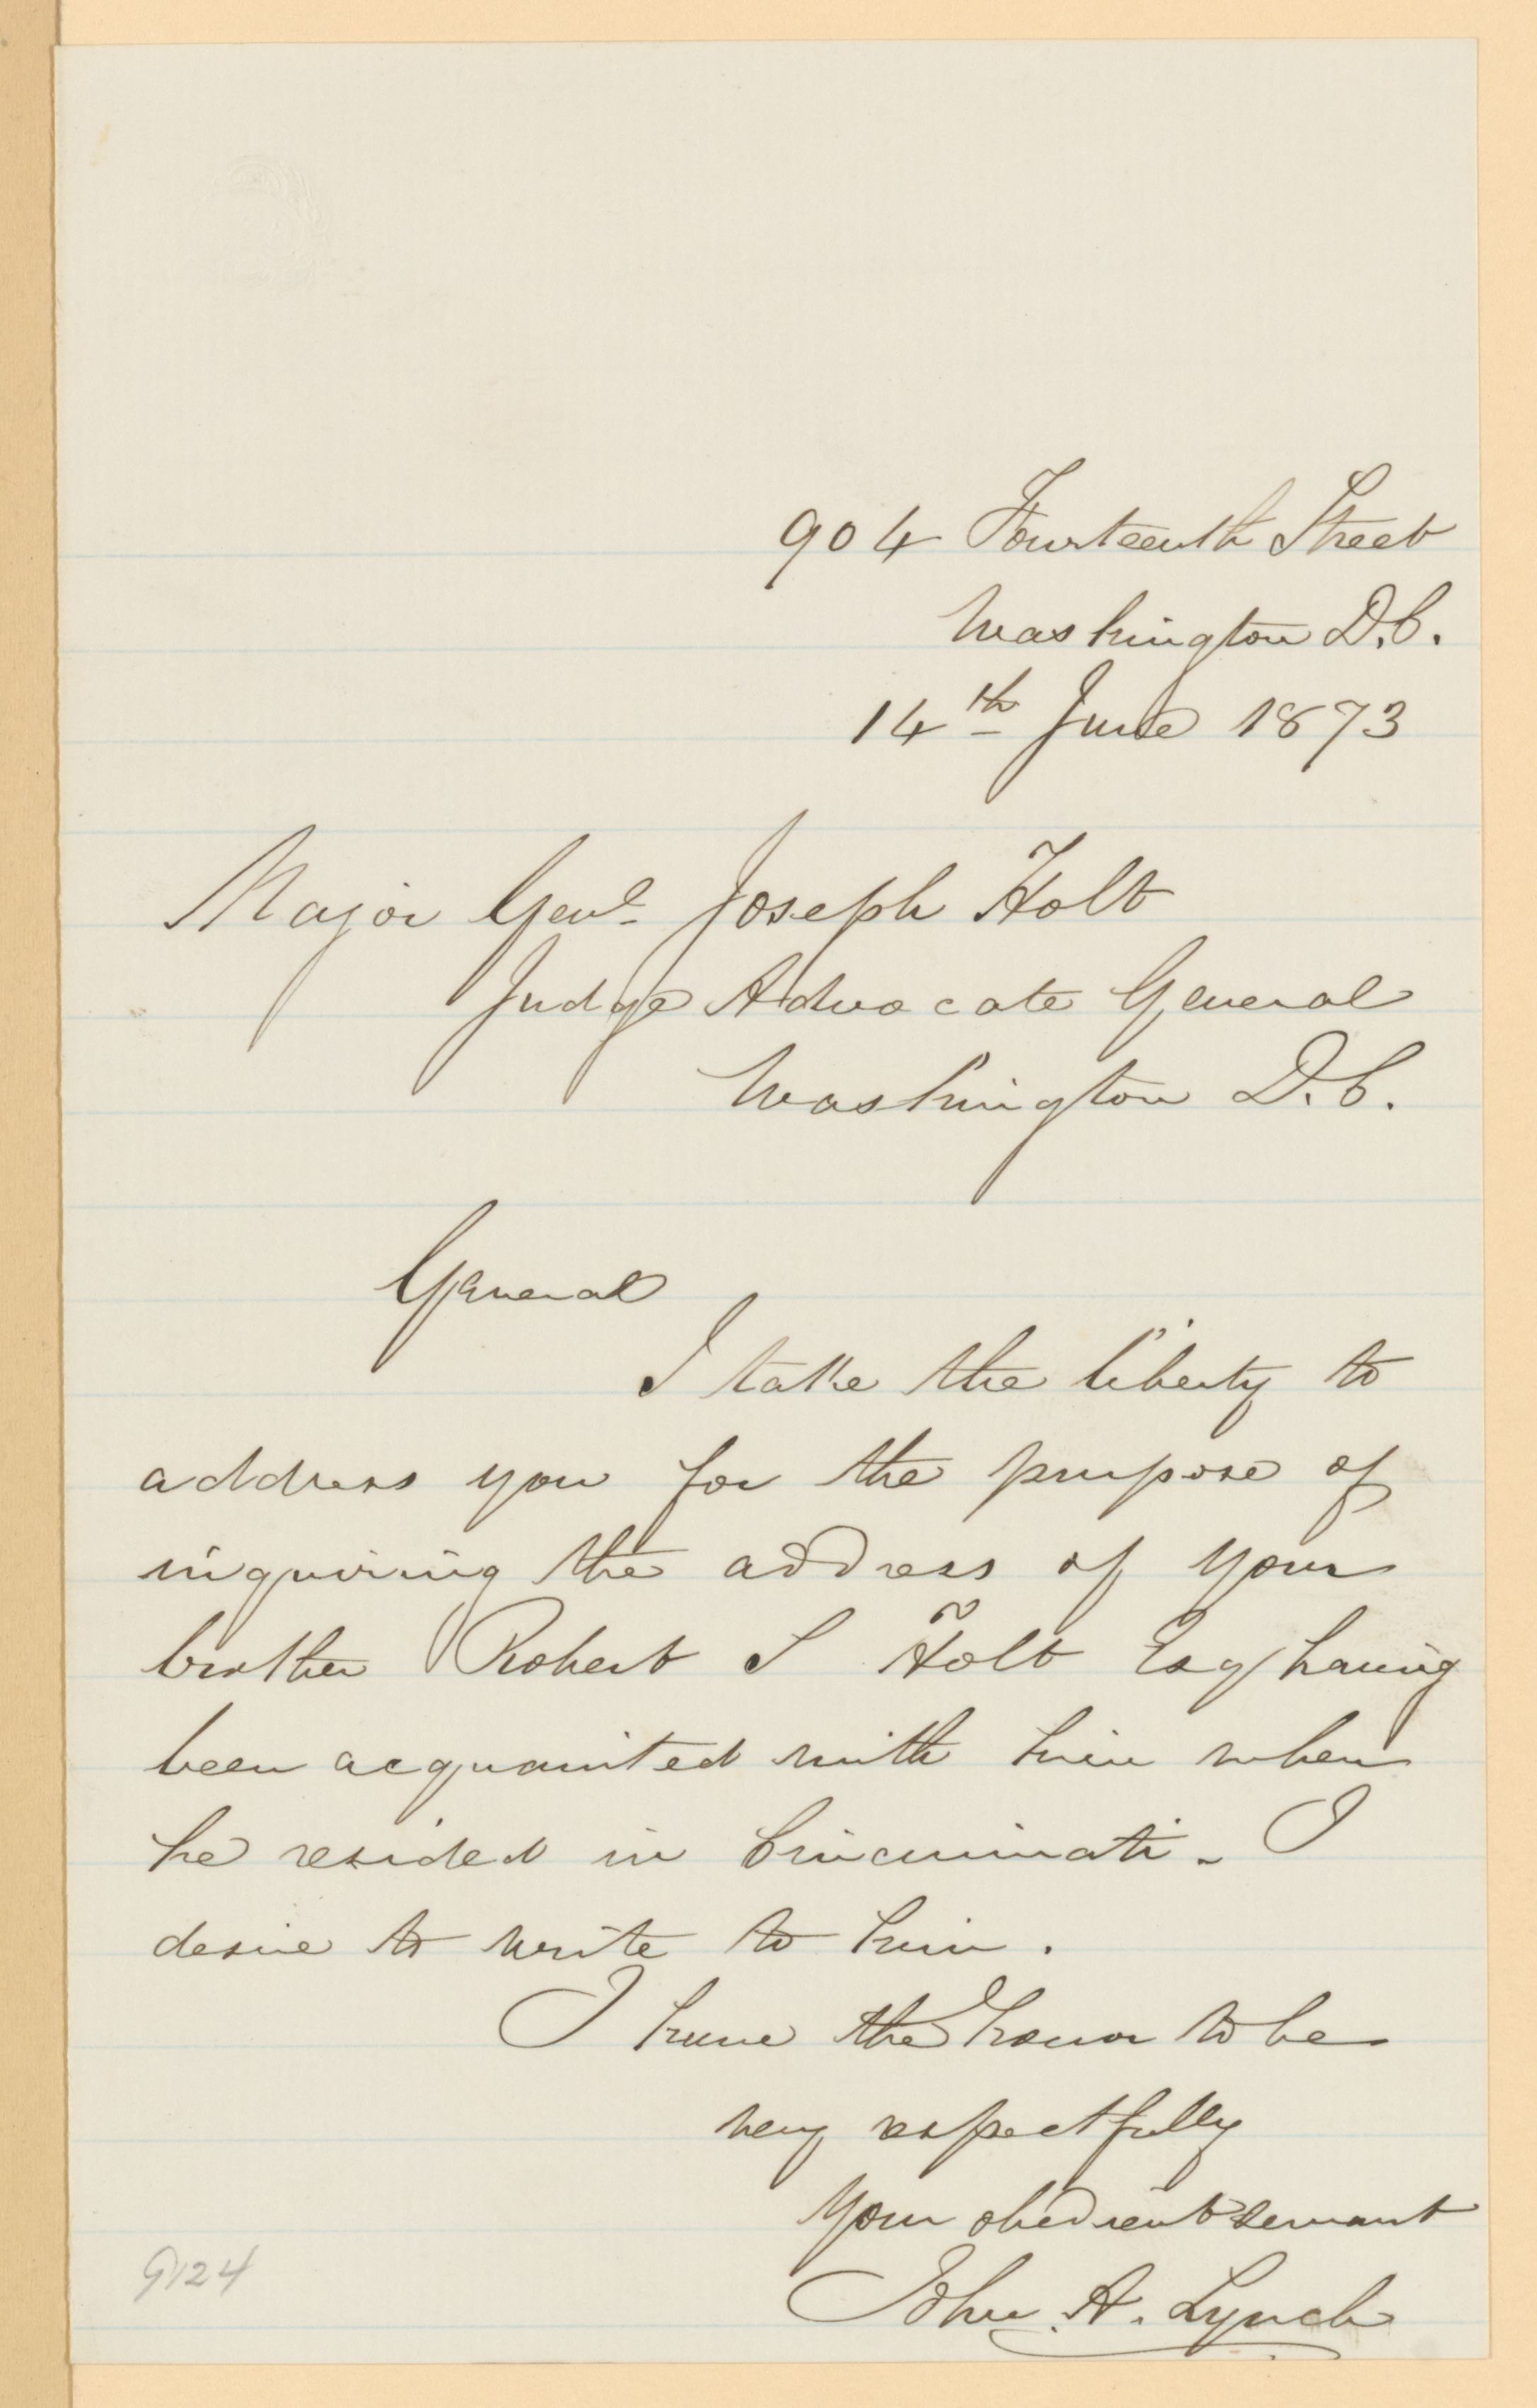 904 Fourteenth Street
Washington D.C.
14th June 1873
Major Genl. Joseph Holt
Judge Advocate General
Washington D.C.
General
I take the liberty to
address you for the purpose of
inquiring the address of your
brother Robert S Holt Esq having
been acquainted with him when
he resided in Cincinnati - I
desire to write to him.
I have the honor to be
very respectfully
Your obedient servant
John A. Lynch
9124